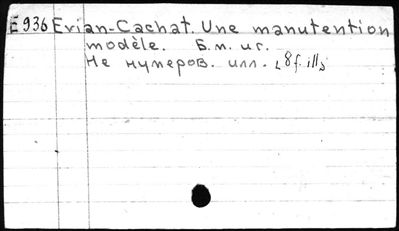 E936 Evian-Cachat. Une manutention
modèle. Б.м. и г.
Не нумеров. илл. [8 f. ill]